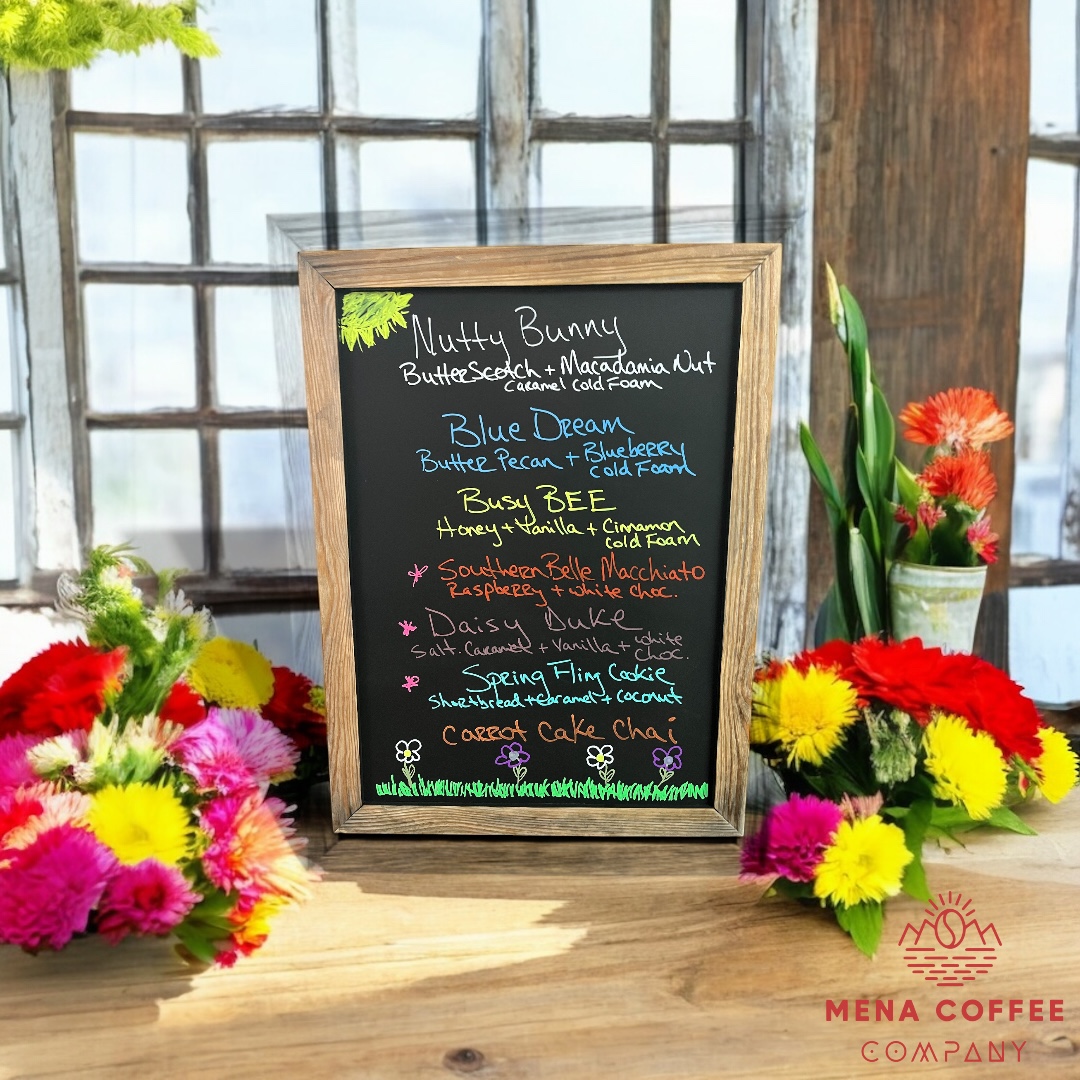 Nutty Bunny
ButterScotch + Macadamia Nut
Caramel Cold Foam
Blue Dream
Butter Pecan + Blueberry
Cold Foam
Busy BEE
Honey + Vanilla + Cinnamon
Cold Foam
Southern Belle Macchiato
Raspberry + white choc.
Daisy Duke
Salt. Caramel + Vanilla + white
choc.
Spring Fling Cookie
Shortbread + Caramel + Coconut
Carrot Cake Chai
MENA COFFEE
COMPANY